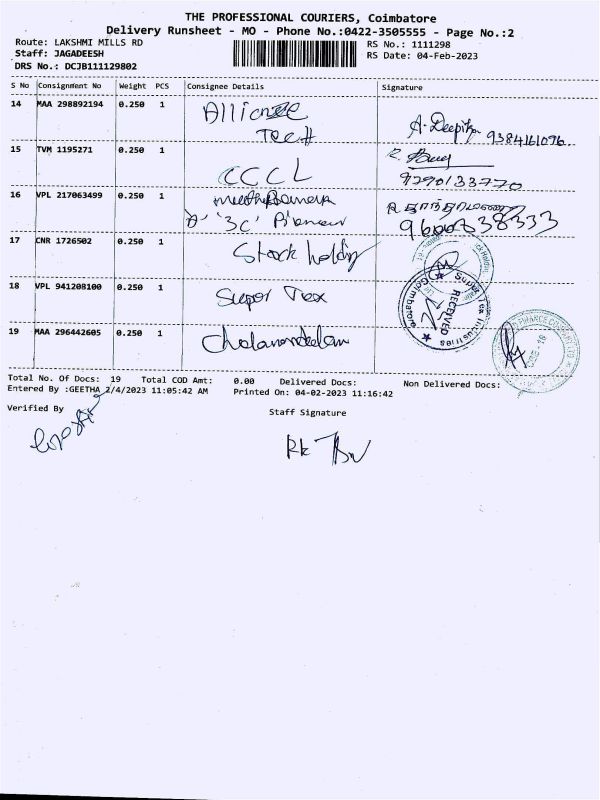 THE PROFESSIONAL COURIERS, Coimbatore
Delivery Runsheet - MO - Phone No.:0422-3505555 - Page No.:2
Route: LAKSHMI MILLS RD
Staff: JAGADEESH
DRS No.: DCJB111129802
RS No.: 1111298
RS Date: 04-Feb-2023
S No Consignment No Weight PCS Consignee Details Signature
14 MAA 298892194 0.250 1 Alliance Tech A. Deepika 9384161096
15 TVM 1195271 0.250 1 CCCL 9790133770
16 VPL 217063499 0.250 1 'A' '3C' 9600838333
17 CNR 1726502 0.250 1 Stock holding
18 VPL 941208100 0.250 1 Super Tex
RECEIVED
19 MAA 296442605 0.250 1 Cholamandalam
Total No. Of Docs: 19 Total COD Amt: 0.00 Delivered Docs: Non Delivered Docs:
Entered By :GEETHA 2/4/2023 11:05:42 AM Printed On: 04-02-2023 11:16:42
Verified By
Staff Signature